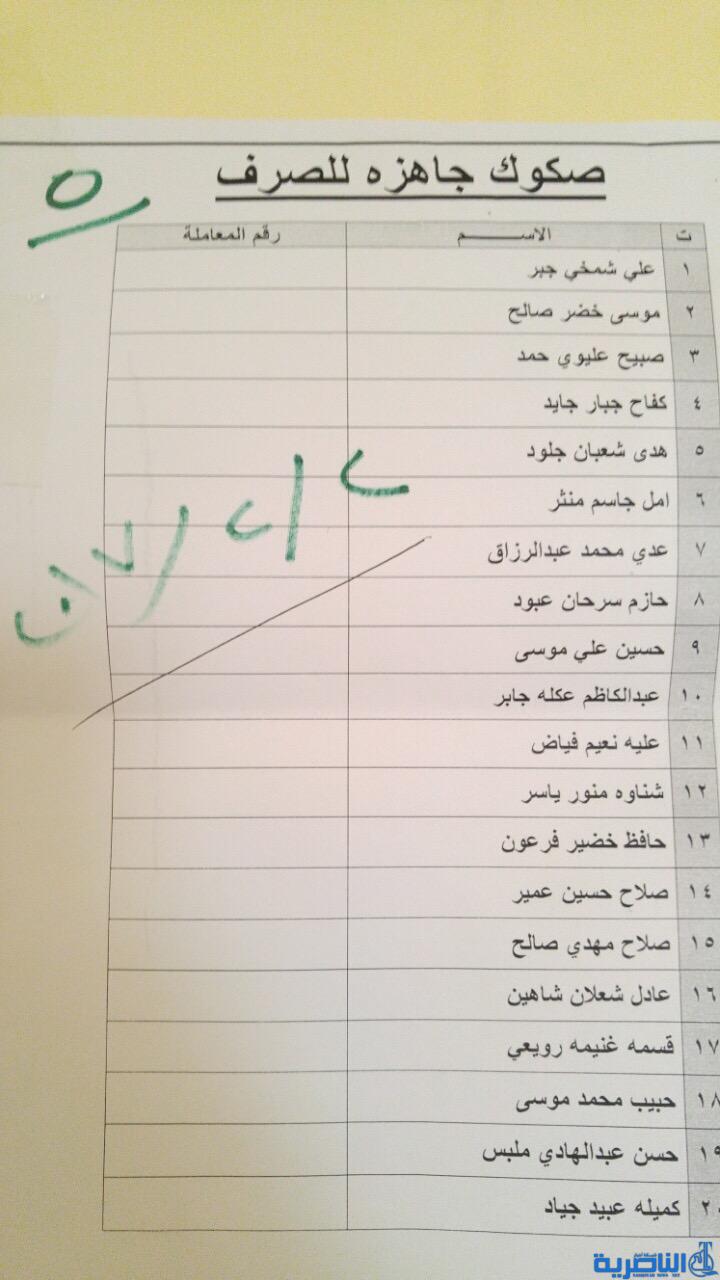 صكوك جاهزه للصرف
٥
ت الاســـــم رقم المعاملة
١ علي شمخي جبر
٢ موسى خضر صالح
٣ صبيح عليوي حمد
٤ كفاح جبار جايد
٥ هدى شعبان جلود
٦ امل جاسم منثر
٧ عدي محمد عبدالرزاق
٨ حازم سرحان عبود
٩ حسين علي موسى
١٠ عبدالكاظم عكله جابر
١١ عليه نعيم فياض
١٢ شناوه منور ياسر
١٣ حافظ خضير فرعون
١٤ صلاح حسين عمير
١٥ صلاح مهدي صالح
١٦ عادل شعلان شاهين
١٧ قسمه غنيمه رويعي
١٨ حبيب محمد موسى
١٩ حسن عبدالهادي ملبس
٢٠ كميله عبيد جياد
الناصرية